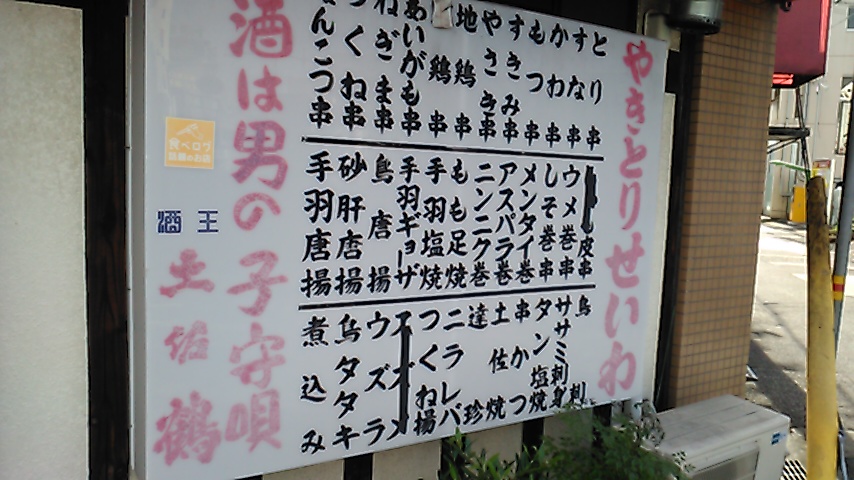 やきとりせいわ
とり串
すな串
かわ串
もつ串
すきみ串
やさき串
地鶏串
鶏串
あいがも串
ねぎま串
つくね串
なんこつ串
皮串
ウメ巻串
しそ巻串
メンタイ巻
アスパラ巻
ニンニク巻
もも足焼
手羽塩焼
手羽ギョーザ
鳥唐揚
砂肝唐揚
手羽唐揚
鳥刺
ササミ刺身
タン塩焼
串かつ
土佐焼
達珍
ニラレバ
つくね揚
ウズラ
鳥タタキ
煮込み
酒は男の子守唄
食べログ
酒王
土佐鶴